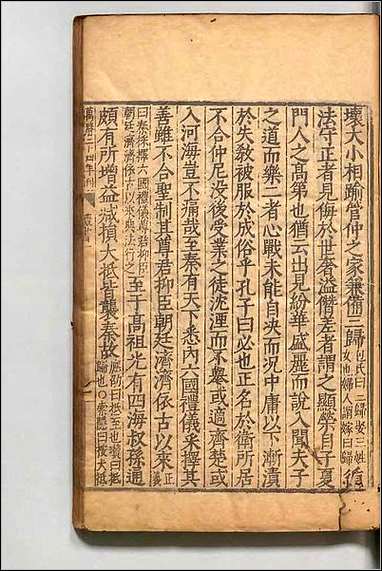 壞大小相踰管仲之家兼備三歸包氏曰三歸娶三姓女也婦人謂嫁曰歸循
法守正者見侮於世奢溢僭差者謂之顯榮自子夏
門人之高弟也猶云出見紛華盛麗而說入聞夫子
之道而樂二者心戰未能自決而況中庸以下漸漬
於失教被服於成俗乎孔子曰必也正名於衛所居
不合仲尼沒後受業之徒沈湮而不舉或適齊楚或
入河海豈不痛哉至秦有天下悉內六國禮儀采擇其
善雖不合聖制其尊君抑臣朝廷濟濟依古以來正
曰秦採擇六國禮儀尊君抑臣朝廷濟濟依古以來典法行之至于高祖光有四海叔孫通
頗有所增益減損大抵皆襲秦故應劭曰抵至也瓚曰抵歸也○索隱曰按大抵
萬曆二十四年刊